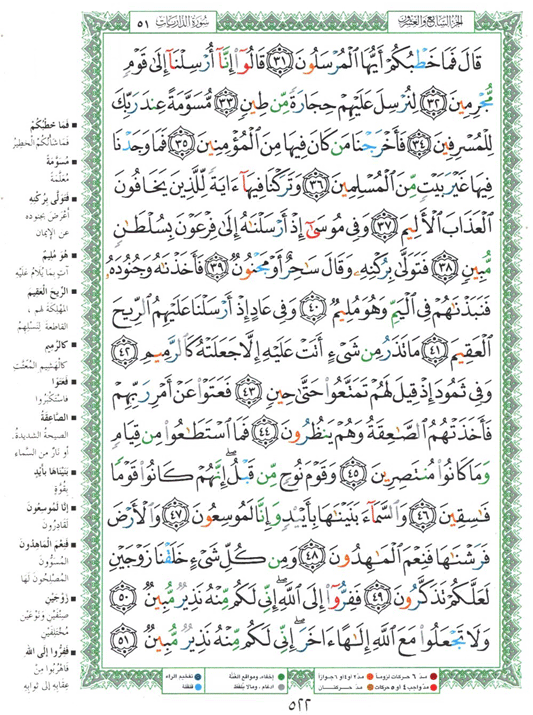 الجزء السابع والعشرون
سُورَةُ الذَّارِيَاتِ ٥١
قَالَ فَمَا خَطْبُكُمْ أَيُّهَا ٱلْمُرْسَلُونَ ٣١ قَالُوٓا۟ إِنَّآ أُرْسِلْنَآ إِلَىٰ قَوْمٍ
مُّجْرِمِينَ ٣٢ لِنُرْسِلَ عَلَيْهِمْ حِجَارَةً مِّن طِينٍ ٣٣ مُّسَوَّمَةً عِندَ رَبِّكَ
لِلْمُسْرِفِينَ ٣٤ فَأَخْرَجْنَا مَن كَانَ فِيهَا مِنَ ٱلْمُؤْمِنِينَ ٣٥ فَمَا وَجَدْنَا
فِيهَا غَيْرَ بَيْتٍ مِّنَ ٱلْمُسْلِمِينَ ٣٦ وَتَرَكْنَا فِيهَآ ءَايَةً لِّلَّذِينَ يَخَافُونَ
ٱلْعَذَابَ ٱلْأَلِيمَ ٣٧ وَفِى مُوسَىٰٓ إِذْ أَرْسَلْنَٰهُ إِلَىٰ فِرْعَوْنَ بِسُلْطَٰنٍ
مُّبِينٍ ٣٨ فَتَوَلَّىٰ بِرُكْنِهِۦ وَقَالَ سَٰحِرٌ أَوْ مَجْنُونٌ ٣٩ فَأَخَذْنَٰهُ وَجُنُودَهُۥ
فَنَبَذْنَٰهُمْ فِى ٱلْيَمِّ وَهُوَ مُلِيمٌ ٤٠ وَفِى عَادٍ إِذْ أَرْسَلْنَا عَلَيْهِمُ ٱلرِّيحَ
ٱلْعَقِيمَ ٤١ مَا تَذَرُ مِن شَىْءٍ أَتَتْ عَلَيْهِ إِلَّا جَعَلَتْهُ كَٱلرَّمِيمِ ٤٢
وَفِى ثَمُودَ إِذْ قِيلَ لَهُمْ تَمَتَّعُوا۟ حَتَّىٰ حِينٍ ٤٣ فَعَتَوْا۟ عَنْ أَمْرِ رَبِّهِمْ
فَأَخَذَتْهُمُ ٱلصَّٰعِقَةُ وَهُمْ يَنظُرُونَ ٤٤ فَمَا ٱسْتَطَٰعُوا۟ مِن قِيَامٍ
وَمَا كَانُوا۟ مُنتَصِرِينَ ٤٥ وَقَوْمَ نُوحٍ مِّن قَبْلُ ۖ إِنَّهُمْ كَانُوا۟ قَوْمًا
فَٰسِقِينَ ٤٦ وَٱلسَّمَآءَ بَنَيْنَٰهَا بِأَيْي۟دٍ وَإِنَّا لَمُوسِعُونَ ٤٧ وَٱلْأَرْضَ
فَرَشْنَٰهَا فَنِعْمَ ٱلْمَٰهِدُونَ ٤٨ وَمِن كُلِّ شَىْءٍ خَلَقْنَا زَوْجَيْنِ
لَعَلَّكُمْ تَذَكَّرُونَ ٤٩ فَفِرُّوٓا۟ إِلَى ٱللَّهِ ۖ إِنِّى لَكُم مِّنْهُ نَذِيرٌ مُّبِينٌ ٥٠
وَلَا تَجْعَلُوا۟ مَعَ ٱللَّهِ إِلَٰهًا ءَاخَرَ ۖ إِنِّى لَكُم مِّنْهُ نَذِيرٌ مُّبِينٌ ٥١
■ فَمَا خَطْبُكُمْ
فَمَا شَأْنُكُمُ الْخَطِيرُ
■ مُسَوَّمَةً
مُعَلَّمَةً
■ فَتَوَلَّى بِرُكْنِهِ
أَعْرَضَ بِجُنُودِهِ
عَنِ الإِيمَانِ
■ هُوَ مُلِيمٌ
آتٍ بِمَا يُلَامُ عَلَيْهِ
■ الرِّيحَ الْعَقِيمَ
المُهْلِكَةَ لَهُمْ ،
القَاطِعَةَ لِنَسْلِهِمْ
■ كَالرَّمِيمِ
كالْهَشِيمِ المُفَتَّتِ
■ فَعَتَوْا
فَاسْتَكْبَرُوا
■ الصَّاعِقَةُ
الصَّيْحَةُ الشَّدِيدَةُ
أَوْ نَارٌ مِنَ السَّمَاءِ
■ بَنَيْنَاهَا بِأَيْدٍ
بِقُوَّةٍ
■ إِنَّا لَمُوسِعُونَ
لَقَادِرُونَ
■ فَنِعْمَ الْمَاهِدُونَ
المُسَوُّونَ
المُصْلِحُونَ لَهَا
■ زَوْجَيْنِ
صِنْفَيْنِ وَنَوْعَيْنِ
مُخْتَلِفَيْنِ
■ فَفِرُّوا إِلَى اللَّهِ
فَاهْرُبُوا مِنْ
عِقَابِهِ إِلَى ثَوَابِهِ
مدّ ٦ حركات لزوماً
مدّ ٢ أو ٤ أو ٦ جوازاً
إخفاء، ومواقع الغُنَّة
تفخيم الراء
مدّ واجب ٤ أو ٥ حركات
مدّ حركتان
ادغام ، ومالا يُلفظ
قلقلة
٥٢٢